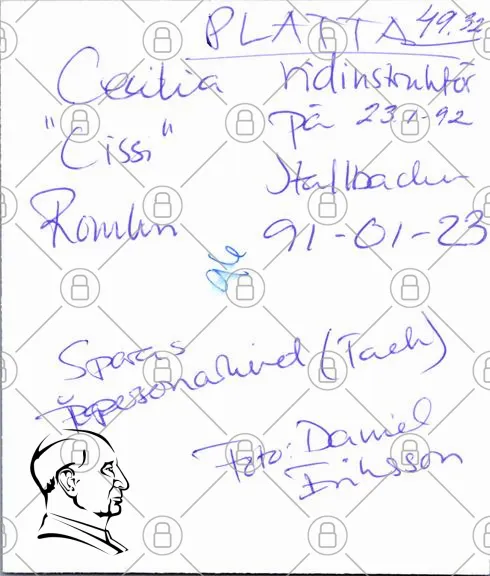 PLATTA 49.32
Cecilia ridinstruktör
"Cissi" på 23.1-92
Stallbacken
Romlin 91-01-23
Sparas
personarkivet (Tack)
Foto: Daniel
Eriksson